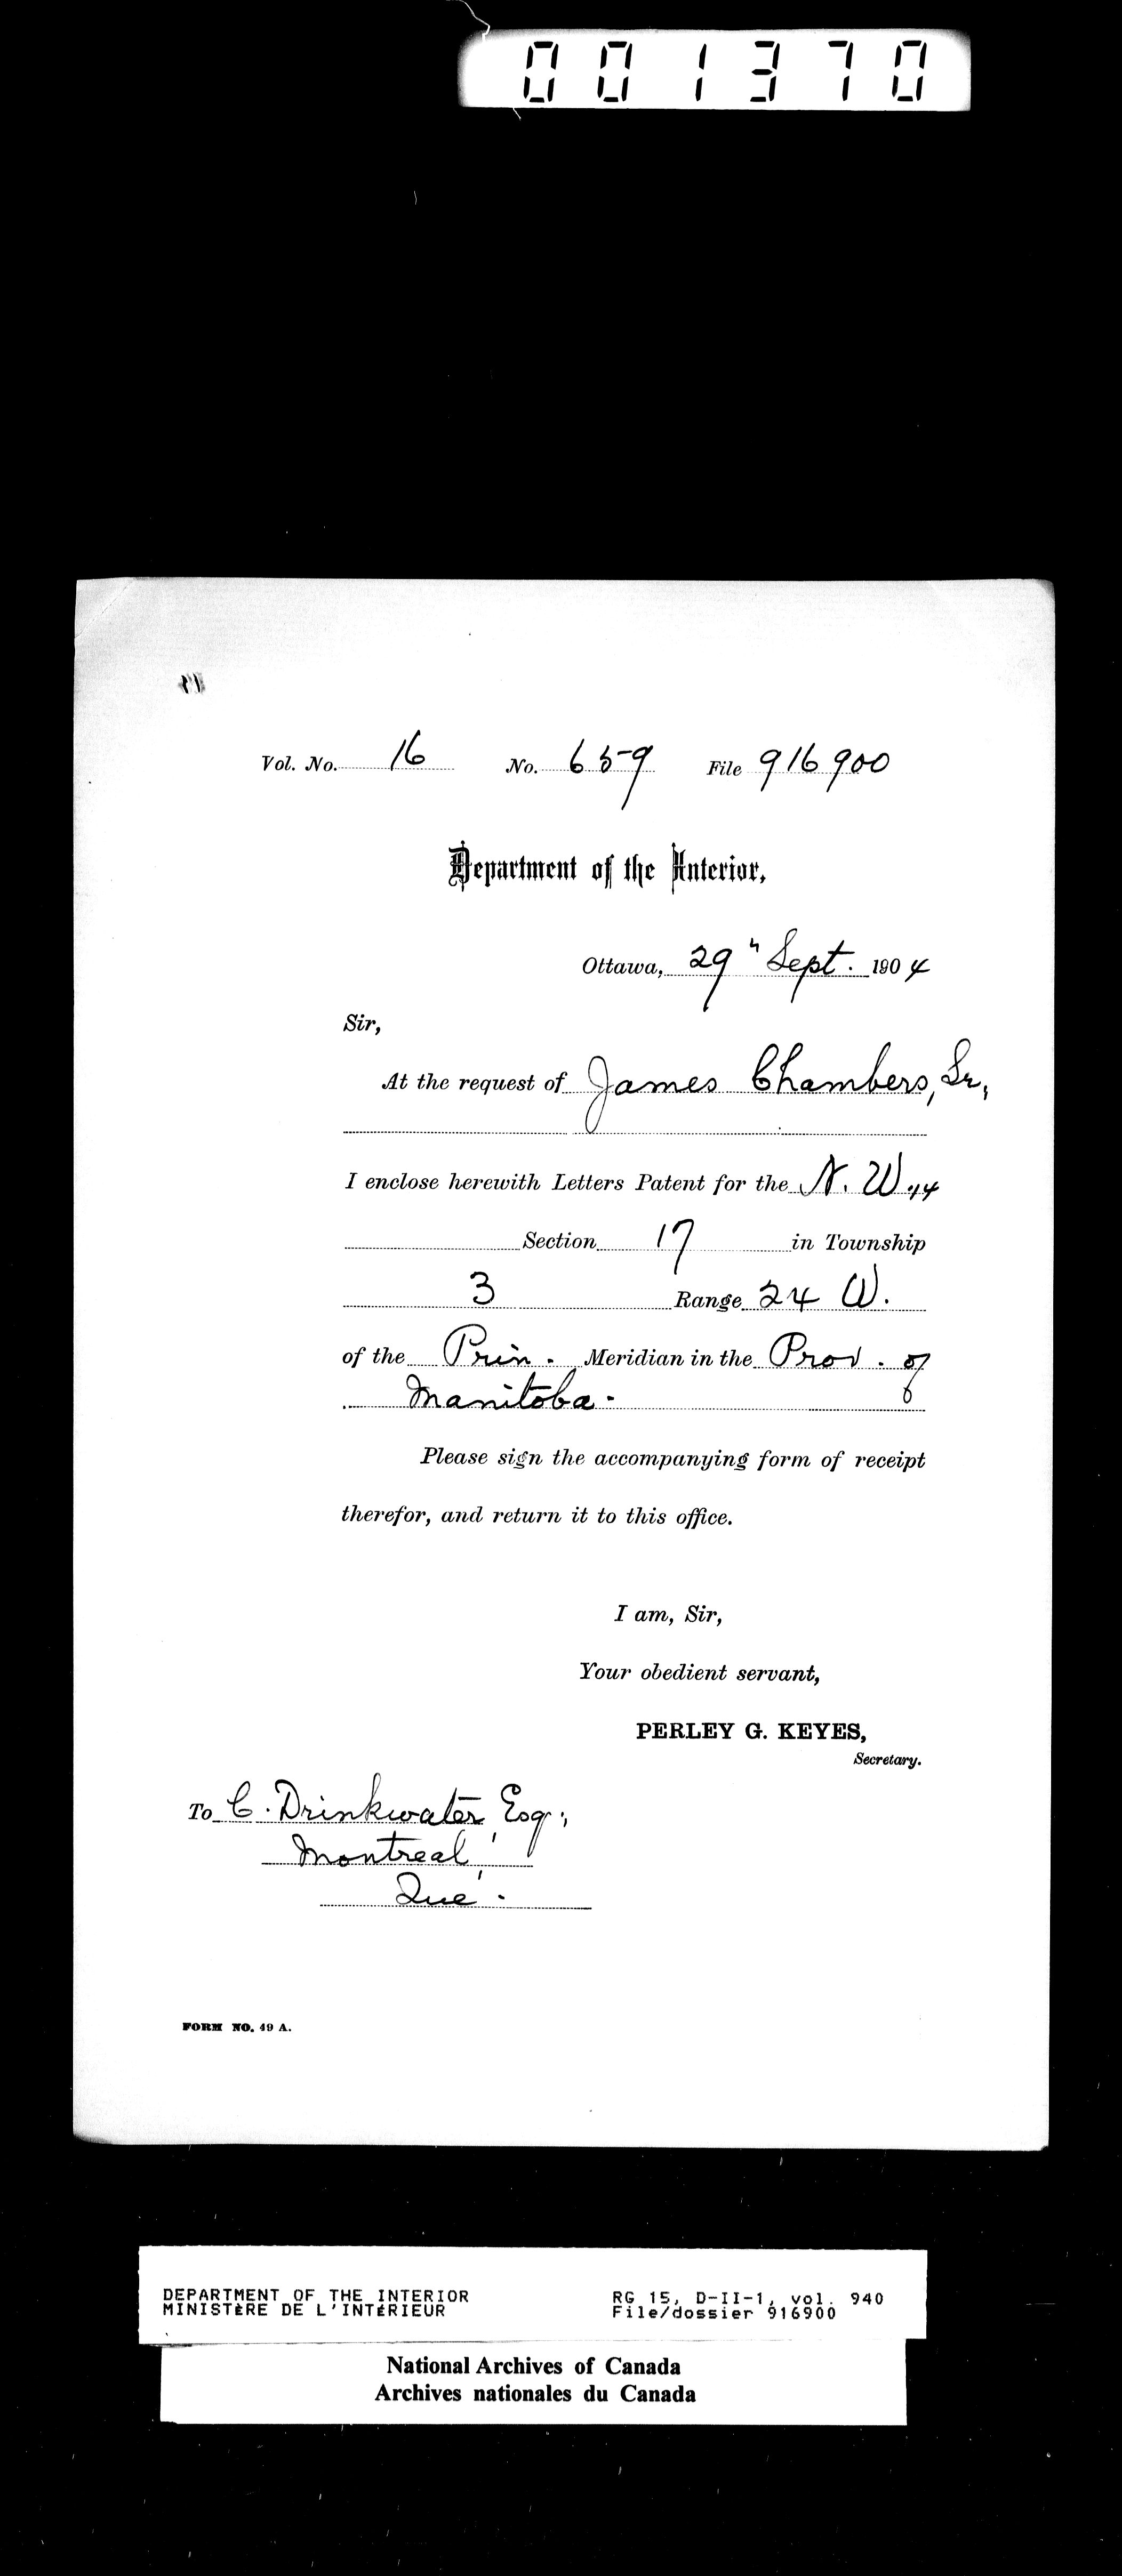 001370
Vol. No. 16 No. 659 File 916900
Department of the Interior,
Ottawa, 29th Sept. 1904
Sir,
At the request of James Chambers, Sr,
I enclose herewith Letters Patent for the N. W. 1/4
Section 17 in Township
3 Range 24 W.
of the Prin. Meridian in the Prov. of
Manitoba.
Please sign the accompanying form of receipt
therefor, and return it to this office.
I am, Sir,
Your obedient servant,
PERLEY G. KEYES,
Secretary.
To C. Drinkwater, Esq;
Montreal,
Que.
FORM NO. 49 A.
DEPARTMENT OF THE INTERIOR RG 15, D-II-1, vol. 940
MINISTÈRE DE L'INTÉRIEUR File/dossier 916900
National Archives of Canada
Archives nationales du Canada